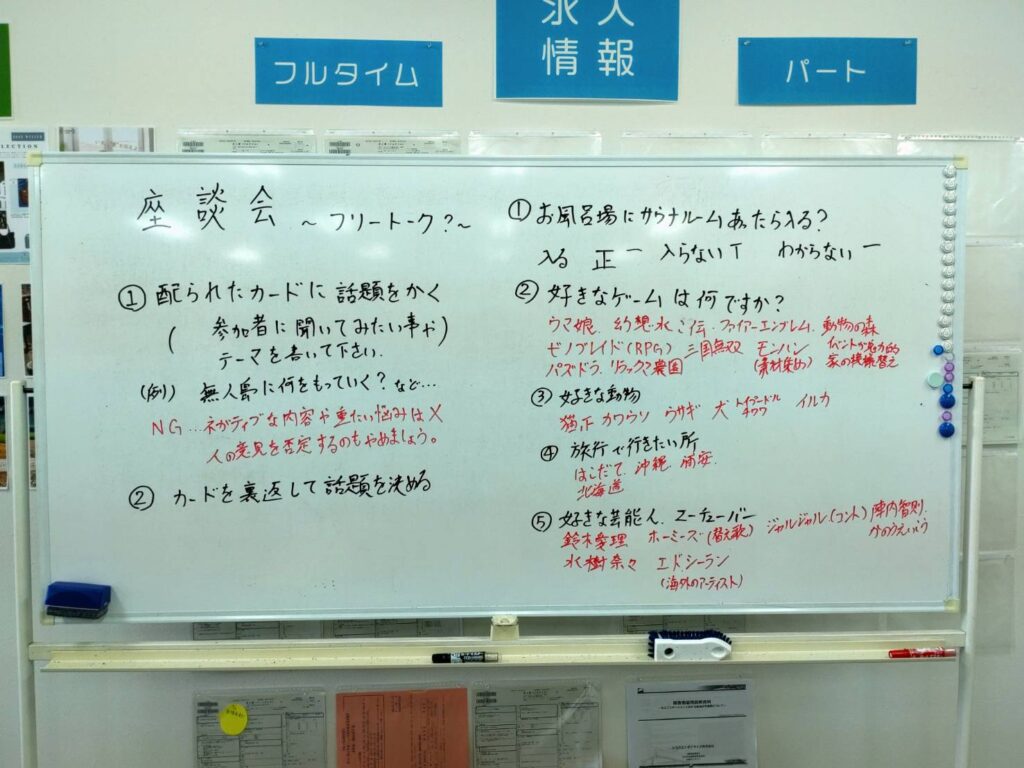 求人
情報
フルタイム
パート
座談会 ～フリートーク?～
① 配られたカードに話題をかく
( 参加者に聞いてみたい事や
テーマを書いて下さい. )
(例) 無人島に何をもっていく? など…
NG…ネガティブな内容や重たい悩みは×
人の意見を否定するのもやめましょう。
② カードを裏返して話題を決める
① お風呂場にサウナルームあったら入る?
入る 正一 入らない T わからない 一
② 好きなゲームは何ですか?
ウマ娘. 幻想水こ伝. ファイアーエンブレム. 動物の森
ゼノブレイド(RPG) 三国無双 モンハン イベントが魅力的
パズドラ. リラックマ農園 (素材集め) 家の模様替え
③ 好きな動物
猫正 カワウソ ウサギ 犬 トイプードル チワワ イルカ
④ 旅行で行きたい所
はこだて. 沖縄. 浦安.
北海道
⑤ 好きな芸能人. ユーチューバー
鈴木愛理 ホーミーズ(替え歌) ジャルジャル(コント) 陣内智則.
水樹奈々 エド.シーラン
(海外のアーティスト)